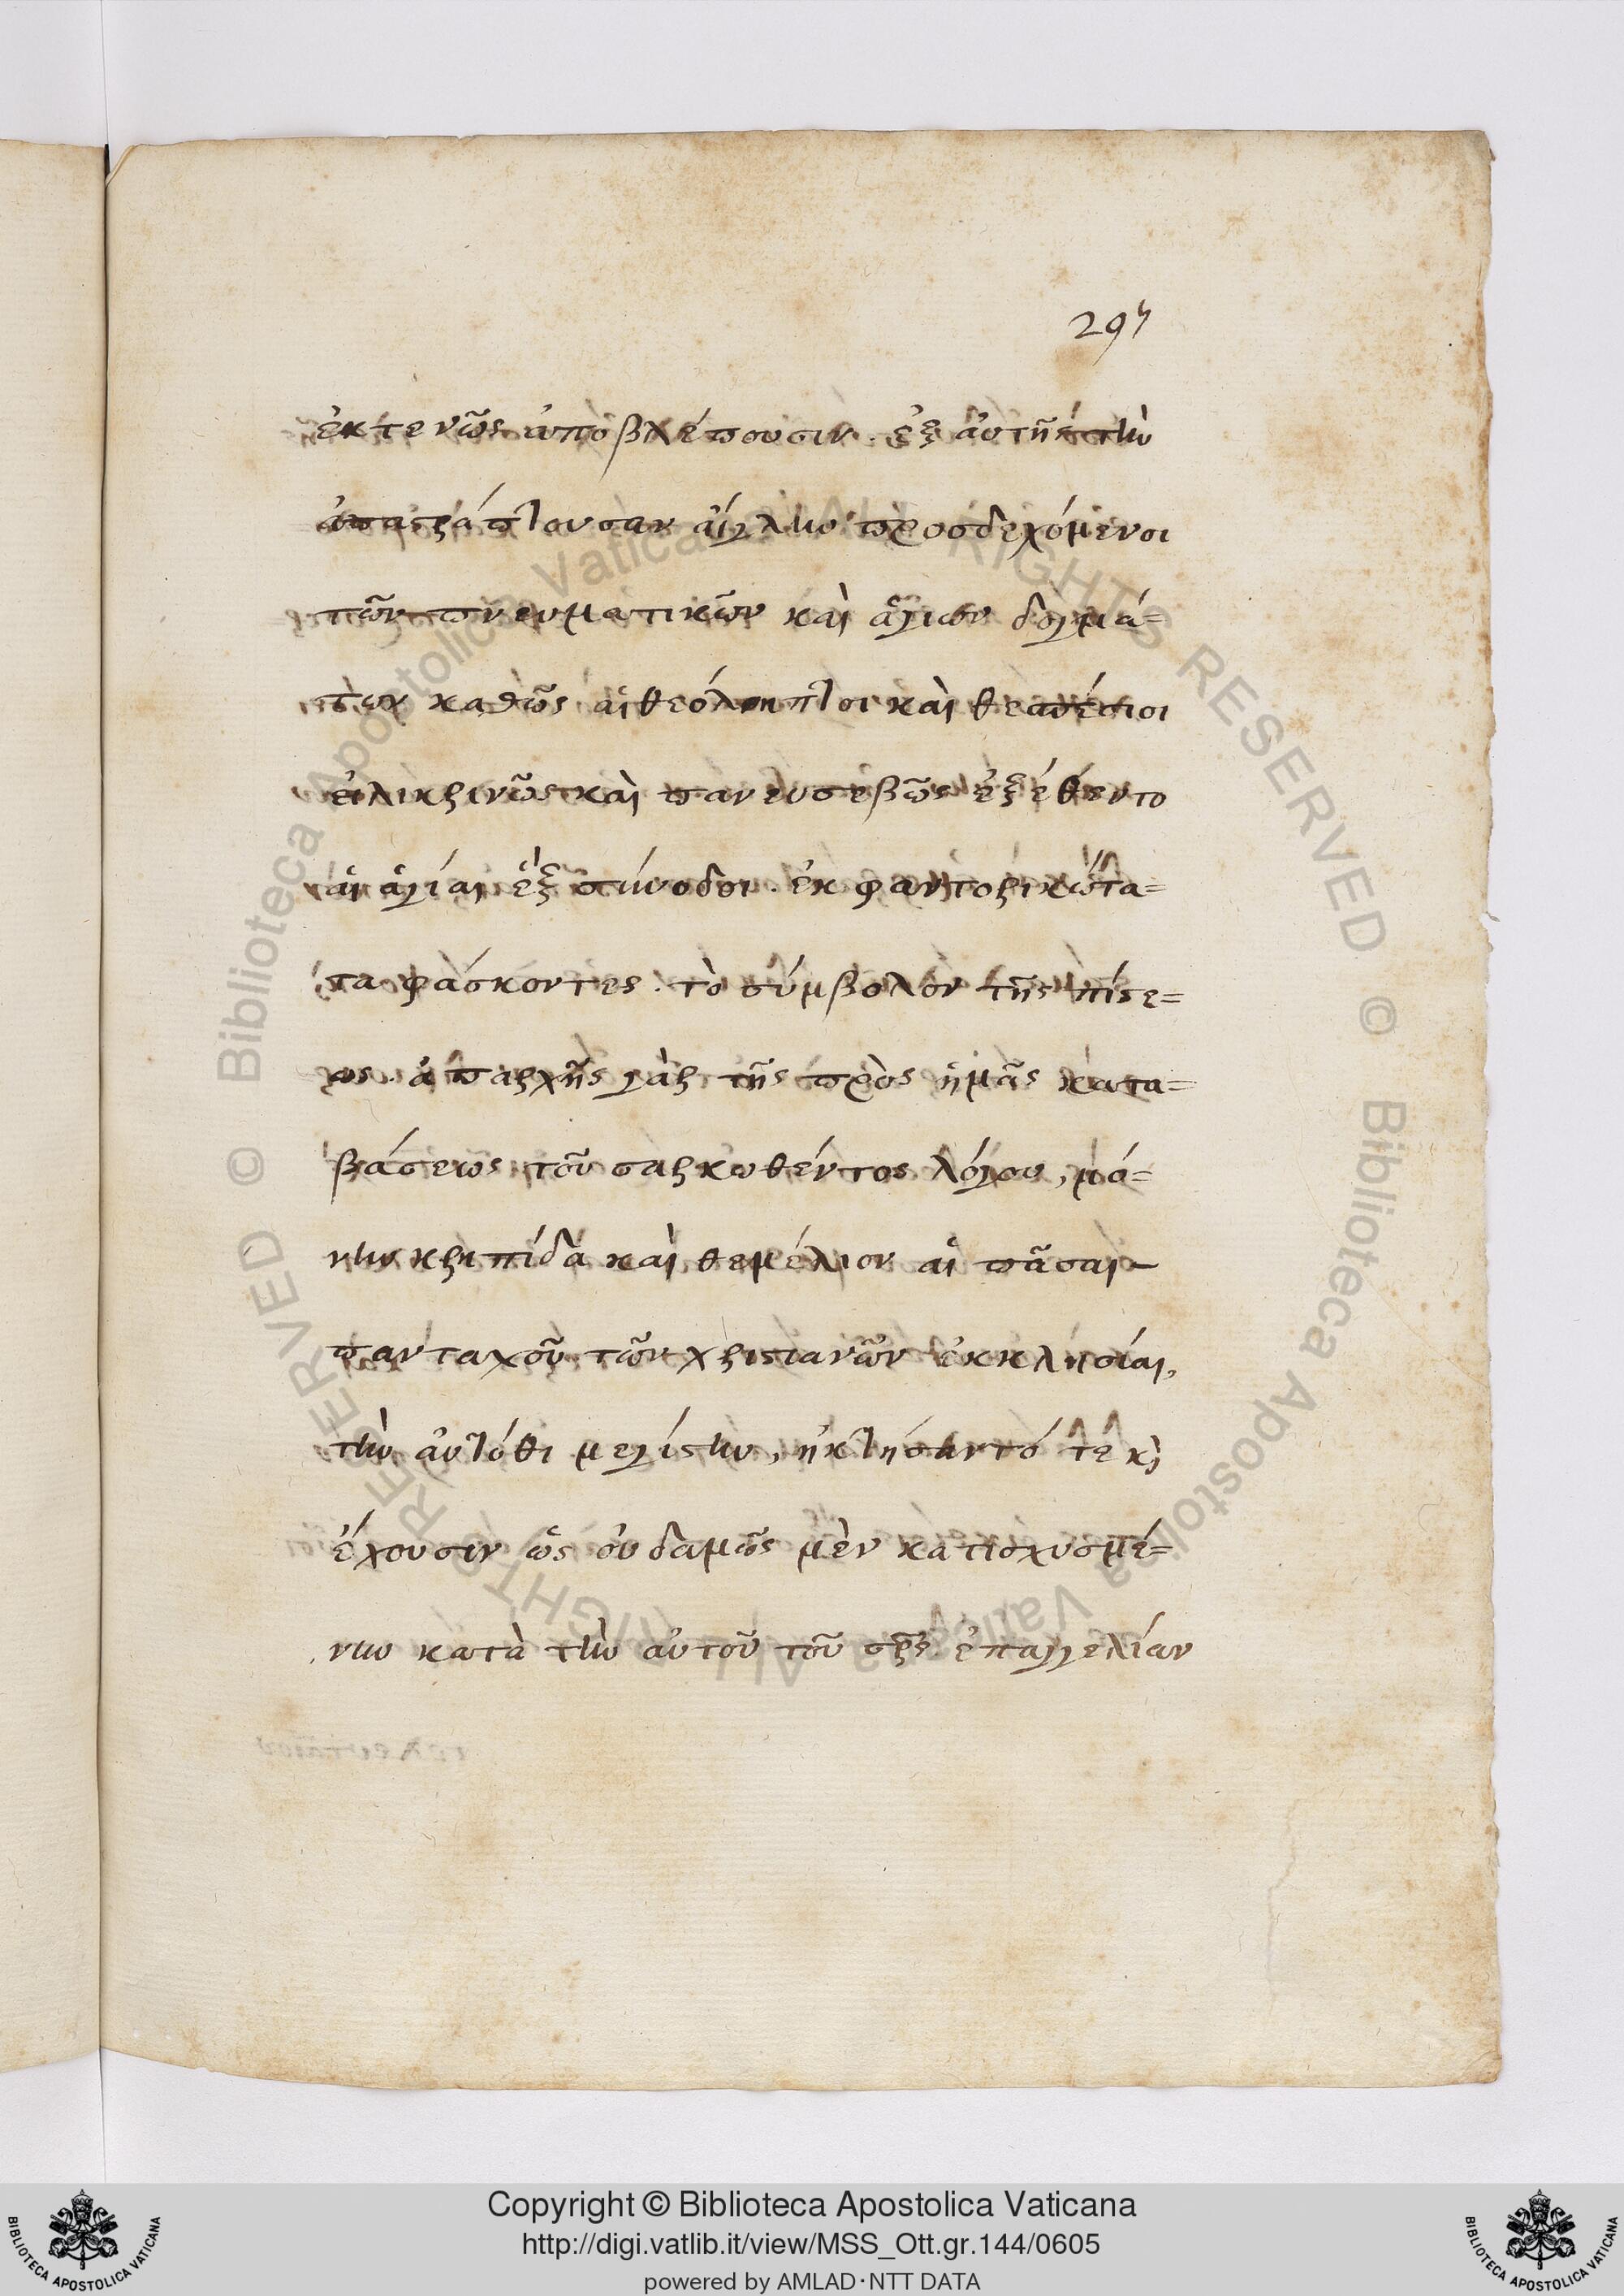 297
ἐκτενῶς ἀποβλέπουσιν. ἐξ ἀυτῆς τὴν
ἀπαστράπτουσαν ἀίγλην προσδεχόμενοι
τῶν πνευματικῶν καὶ ἁγίων δογμά=
των καθῶς ἁι θεόληπτοι καὶ θεσπέσιοι
ἐιλικρινῶς καὶ πανευσεβῶς ἐξέθεντο
ἁι ἁγίαι ἓξ σύνοδοι. ἐκφαντορικώτα=
τα φάσκοντες. τὸ σύμβολον τῆς πίστε=
ως. ἀπαρχῆς γὰρ τῆς πρὸς ἡμᾶς κατα=
βάσεως τοῦ σαρκωθέντος λόγου, μό=
νην κρηπίδα καὶ θεμέλιον ἁι πᾶσαι
πανταχοῦ τῶν χριστιανῶν ἐκκλησίαι,
τὴν ἀυτόθι μεγίστην, ἠκτήσαντό τε κὶ
ἔχουσιν ὡς ὀυδαμῶς μὲν κατισχυσμέ=
νην κατὰ τὴν ἀυτοῦ τοῦ σρς ἐπαγγελίαν
Copyright © Biblioteca Apostolica Vaticana
http://digi.vatlib.it/view/MSS_Ott.gr.144/0605
powered by AMLAD·NTT DATA